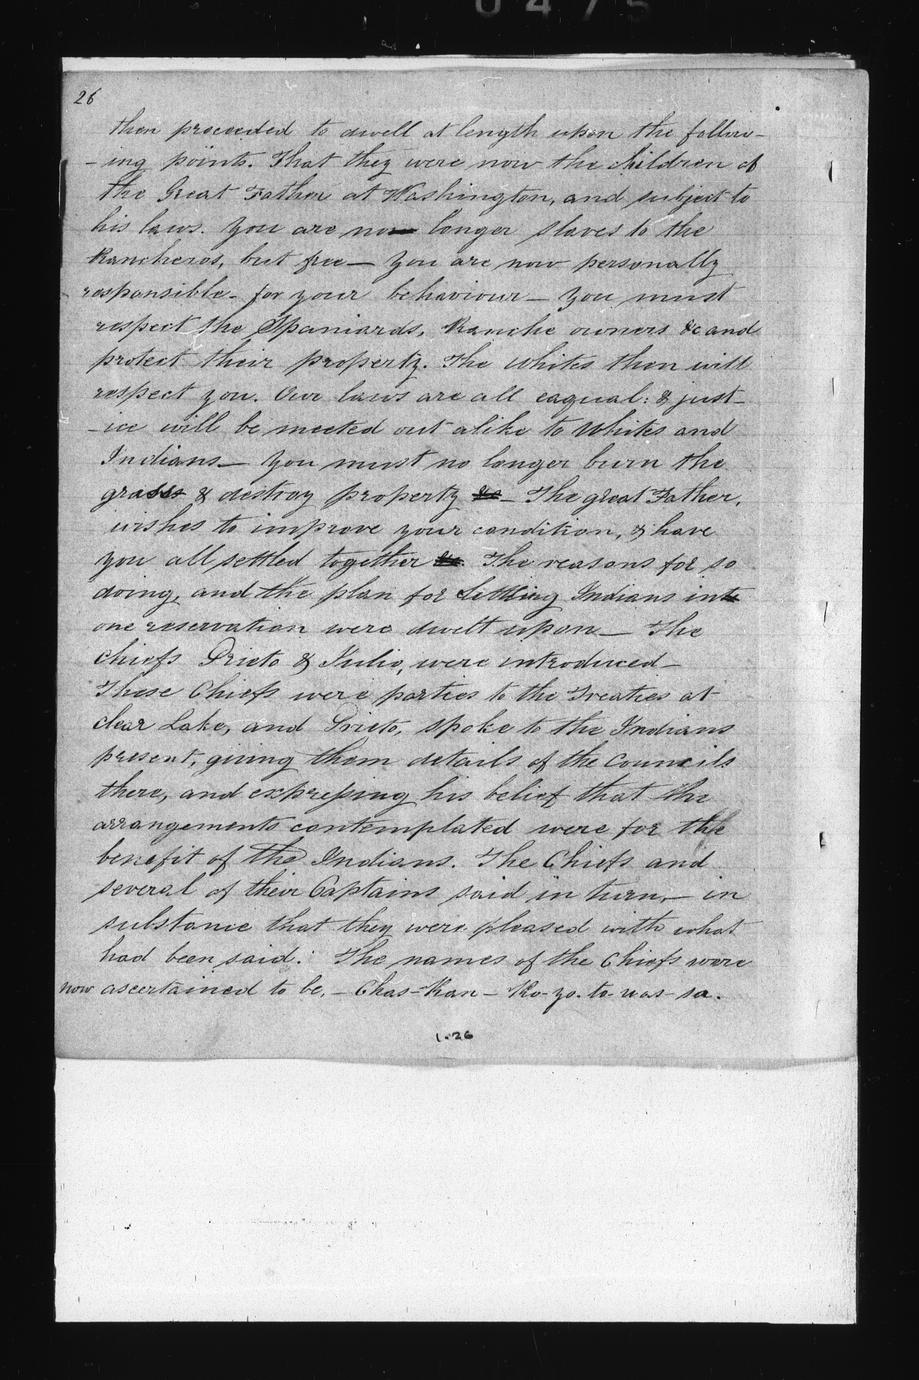 0475
26
then proceeded to dwell at length upon the follow-
-ing points. That they were now the children of
the Great Father at Washington, and subject to
his laws. You are no longer slaves to the
Rancheros, but free— You are now personally
responsible- for your behaviour— You must
respect the Spaniards, Ranche owners &c and
protect their property. The Whites then will
respect you. Our laws are all eaqual: & just-
-ice will be meeted out alike to Whites and
Indians— You must no longer burn the
grass & destroy property &c — The great Father,
wishes to improve your condition, & have
you all settled together &c. The reasons for so
doing, and the plan for Settling Indians into
one reservation were dwelt upon— The
Chiefs Prieto & Julio, were introduced—
These Chiefs were parties to the Treaties at
Clear Lake, and Prieto, spoke to the Indians
present, giving them details of the Councils
there, and expressing his belief that the
arrangements contemplated were for the
benefit of the Indians. The Chiefs and
several of their Captains said in turn,— in
substance that they were pleased with what
had been said: The names of the Chiefs were
now ascertained to be, - Chas-Kan — Ko-yo-to-was-sa.
1.26